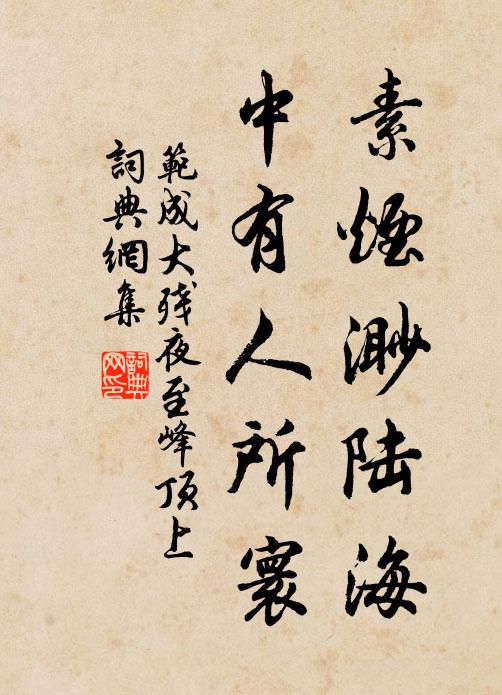 素煙渺陆海
中有人所寰
範成大残夜至峰顶上
詞典網集
詞典網印